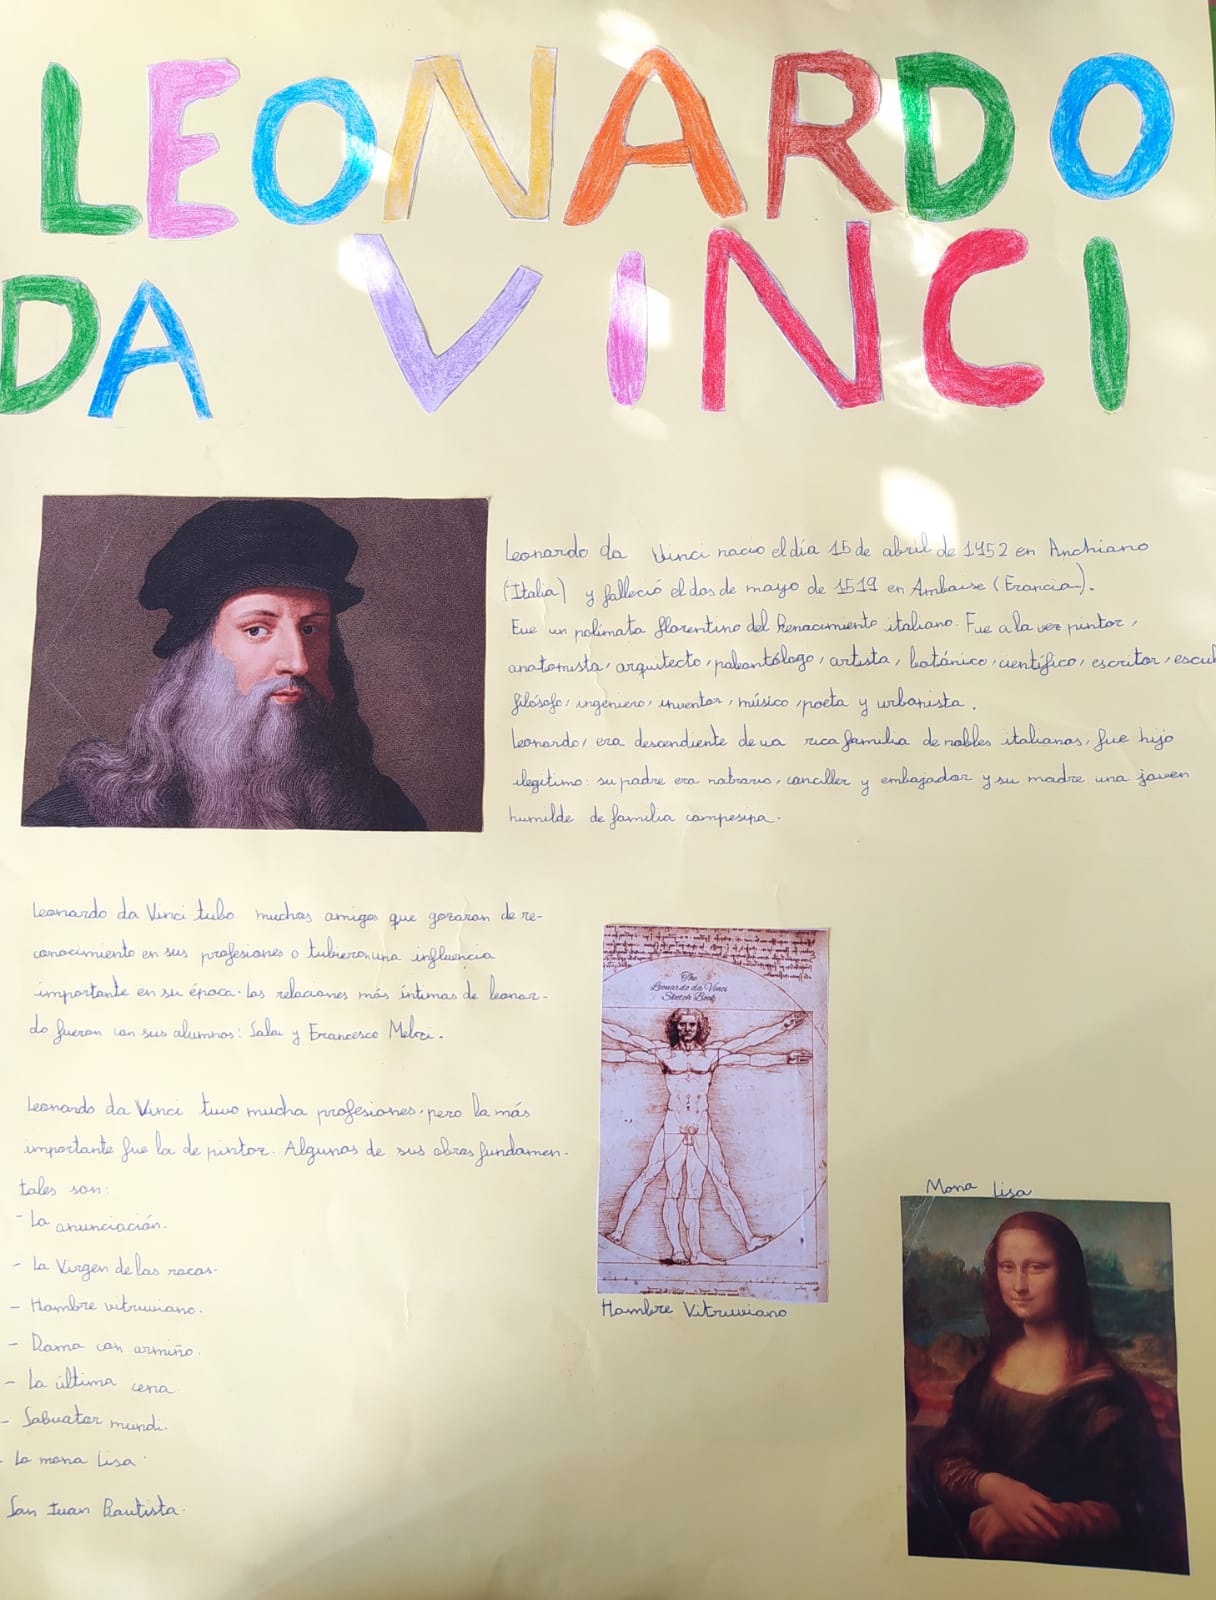 LEONARDO
DA VINCI
Leonardo da Vinci nacio el día 15 de abril de 1952 en Anchiano
(Italia) y falleció el dos de mayo de 1519 en Ambaise (Francia).
Fue un polímata florentino del Renacimiento italiano. Fue a la vez pintor,
anatomista, arquitecto, paleontólogo, artista, botánico, científico, escritor, escul
filósofo, ingeniero, inventor, músico, poeta y urbanista.
Leonardo, era descendiente de ua rica familia de nobles italianos, fue hijo
ilegítimo: su padre era notrario, canciller y embajador y su madre una joven
humilde de familia campesina.
Leonardo da Vinci tubo muchos amigos que gozaron de re-
conocimiento en sus profesiones o tubieron una influencia
importante en su época. Las relaciones más íntimas de leonar-
do fueron con sus alumnos: Salai y Francesco Melzi.
Leonardo da Vinci tuvo mucha profesiones, pero la más
importante fue la de pintor. Algunas de sus obras fundamen-
tales son:
- La anunciación.
- La Virgen de las rocas.
- Hombre vitruviano.
- Dama con armiño.
- La última cena.
- Salvator mundi.
- La mona Lisa.
San Juan Bautista.
The
Leonardo da Vinci
Sketch Book
Hombre Vitruviano
Mona Lisa